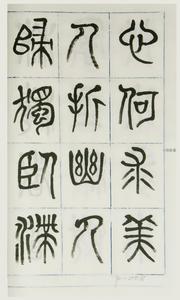 心何求美
人折幽人
歸獨臥滯